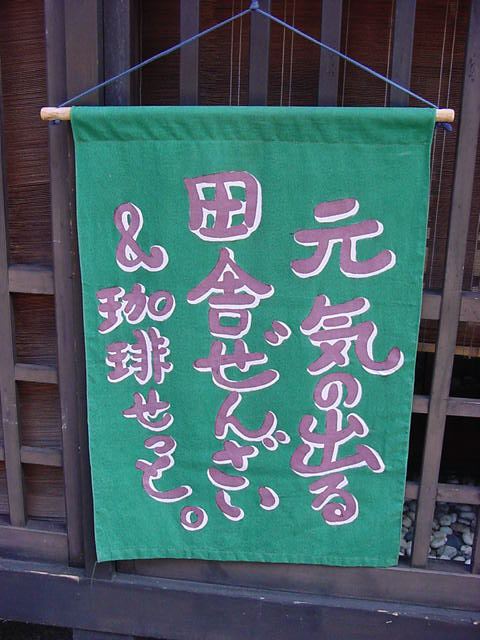 元気の出る
田舎ぜんざい
&珈琲せっと。